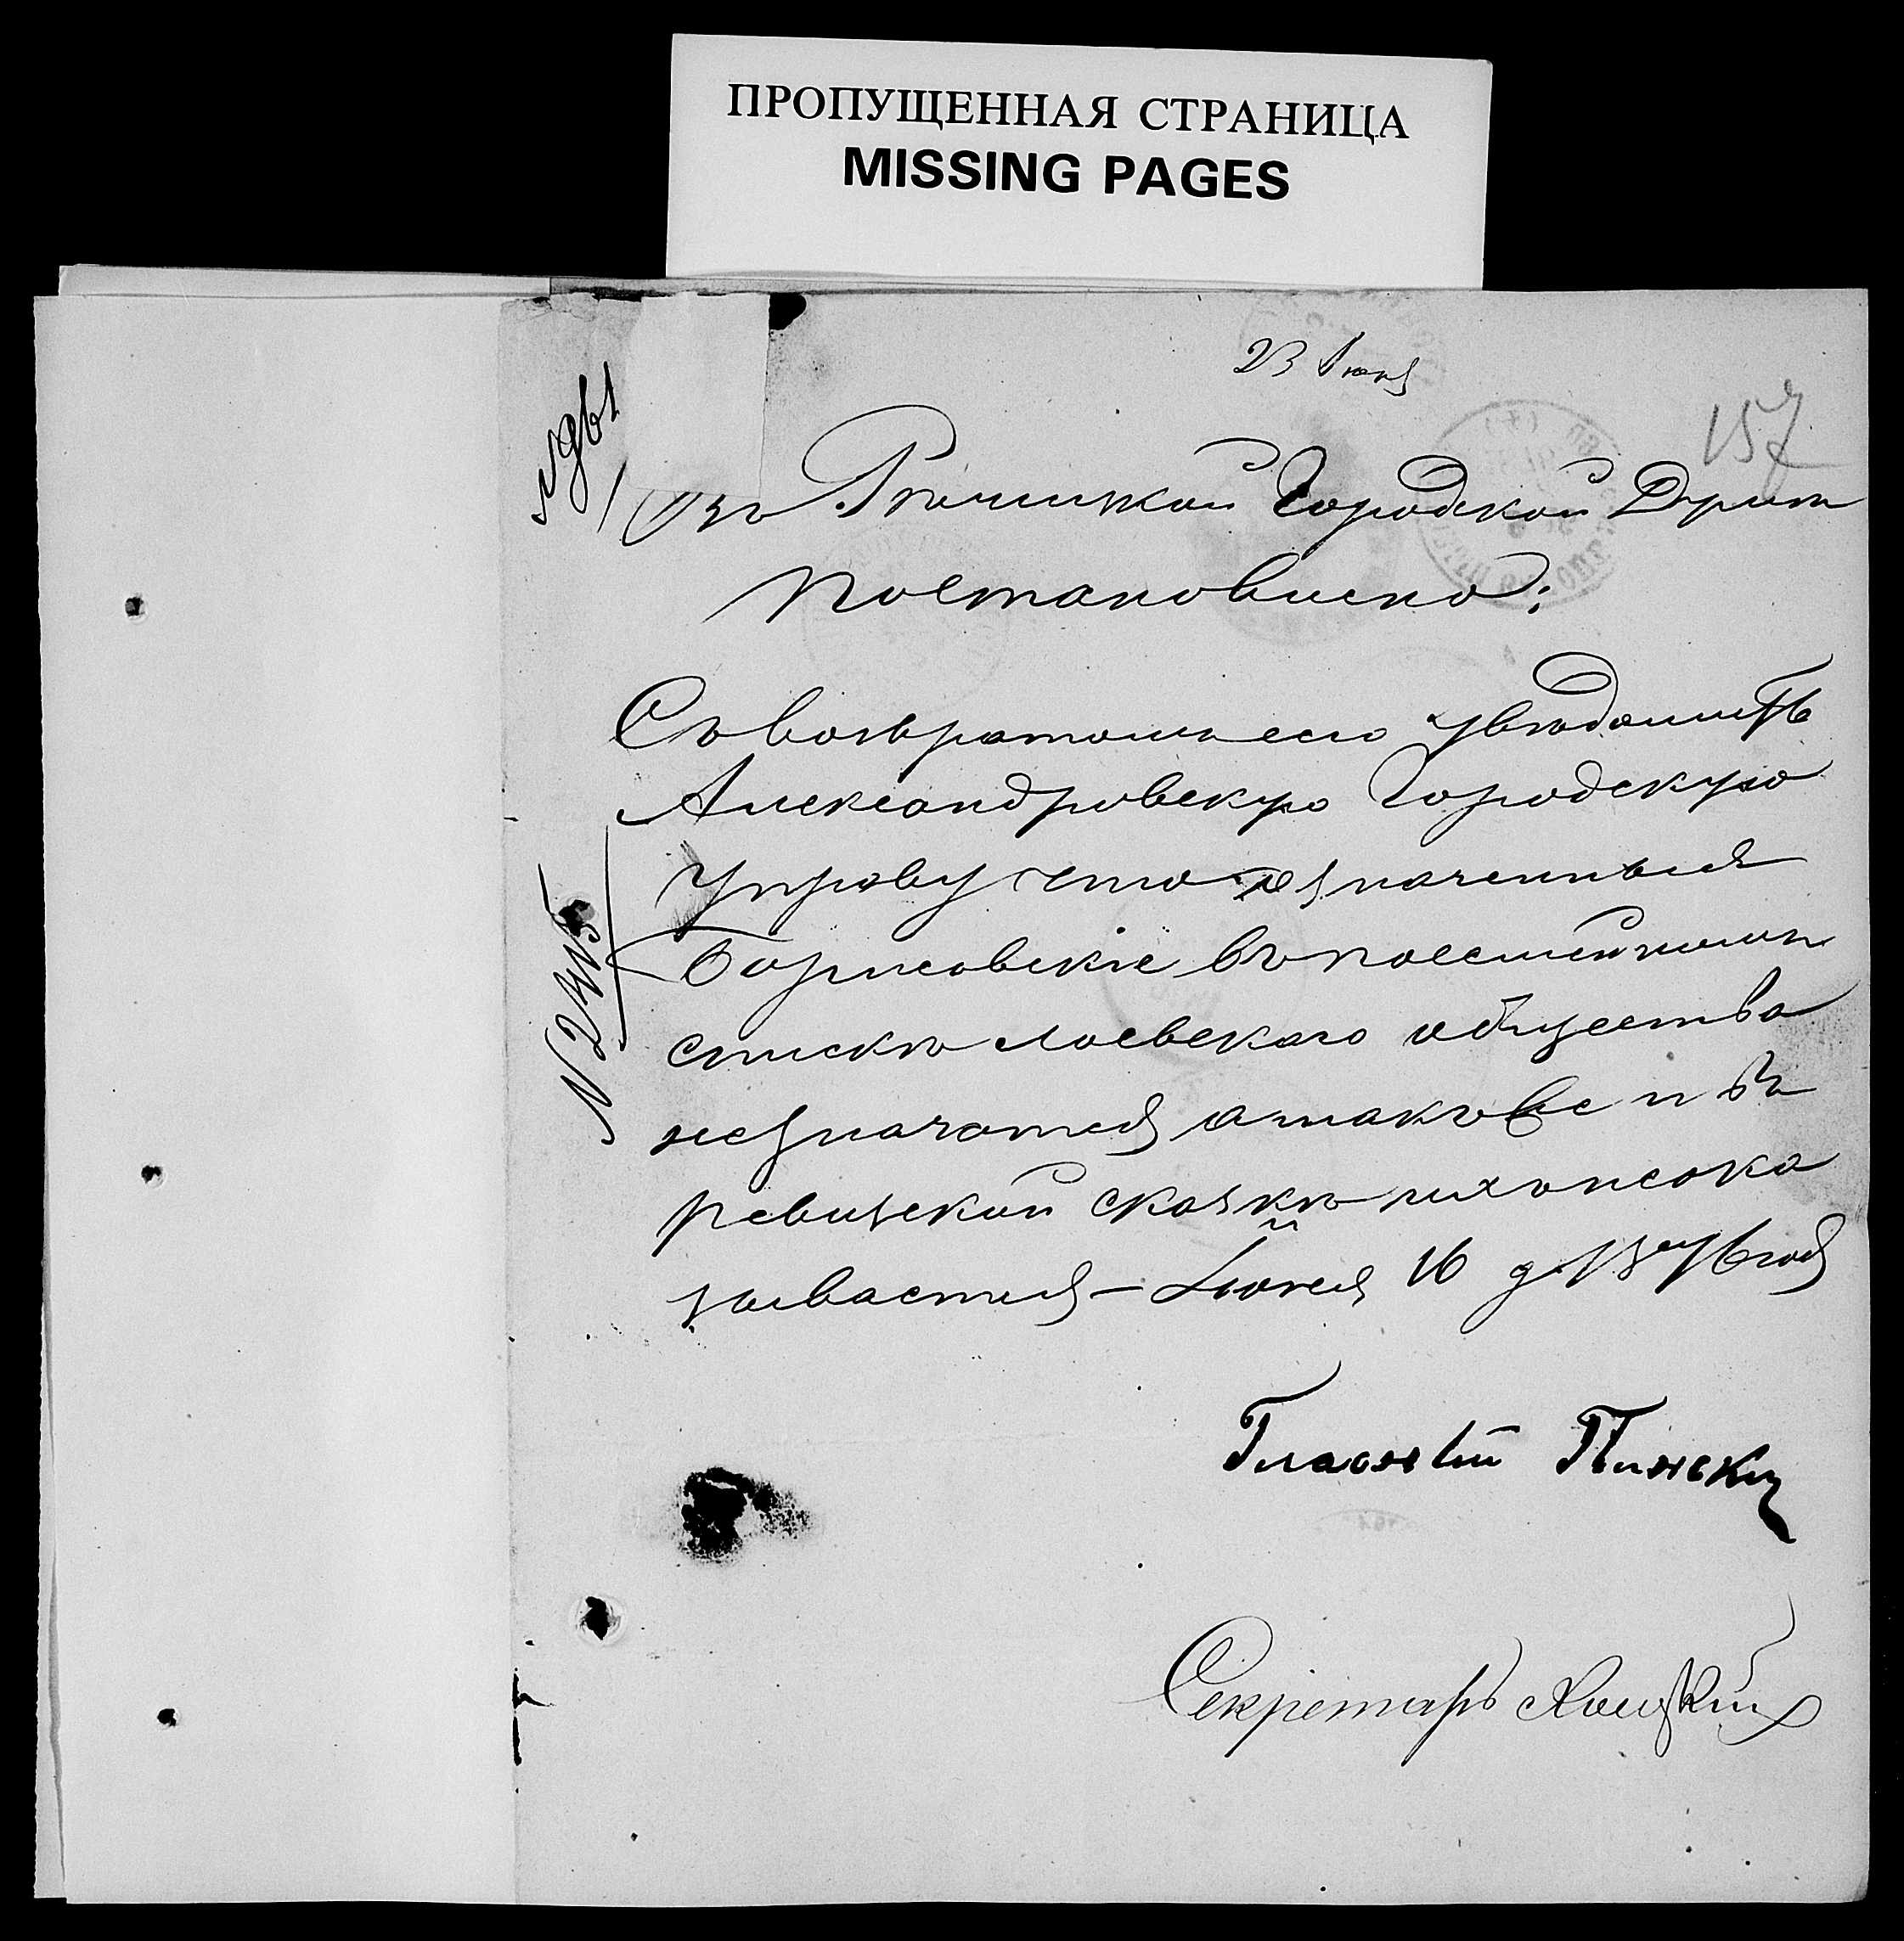 ПРОПУЩЕННАЯ СТРАНИЦА
MISSING PAGES
23 Іюня
157
№961
Въ Рѣчицкой Городской Думѣ
постановлено:
Съ возвратомъ сего увѣдомить
Александровскую Городскую
Управу что означенныя
Борисовскіе въ посемейномъ
№2415
спискѣ Лоевскаго общества
незначатся а также и въ
ревизской сказкѣ ихъ неока
зывается – Іюня 16 д 1876 года
Гласный Пинский
Секретарь